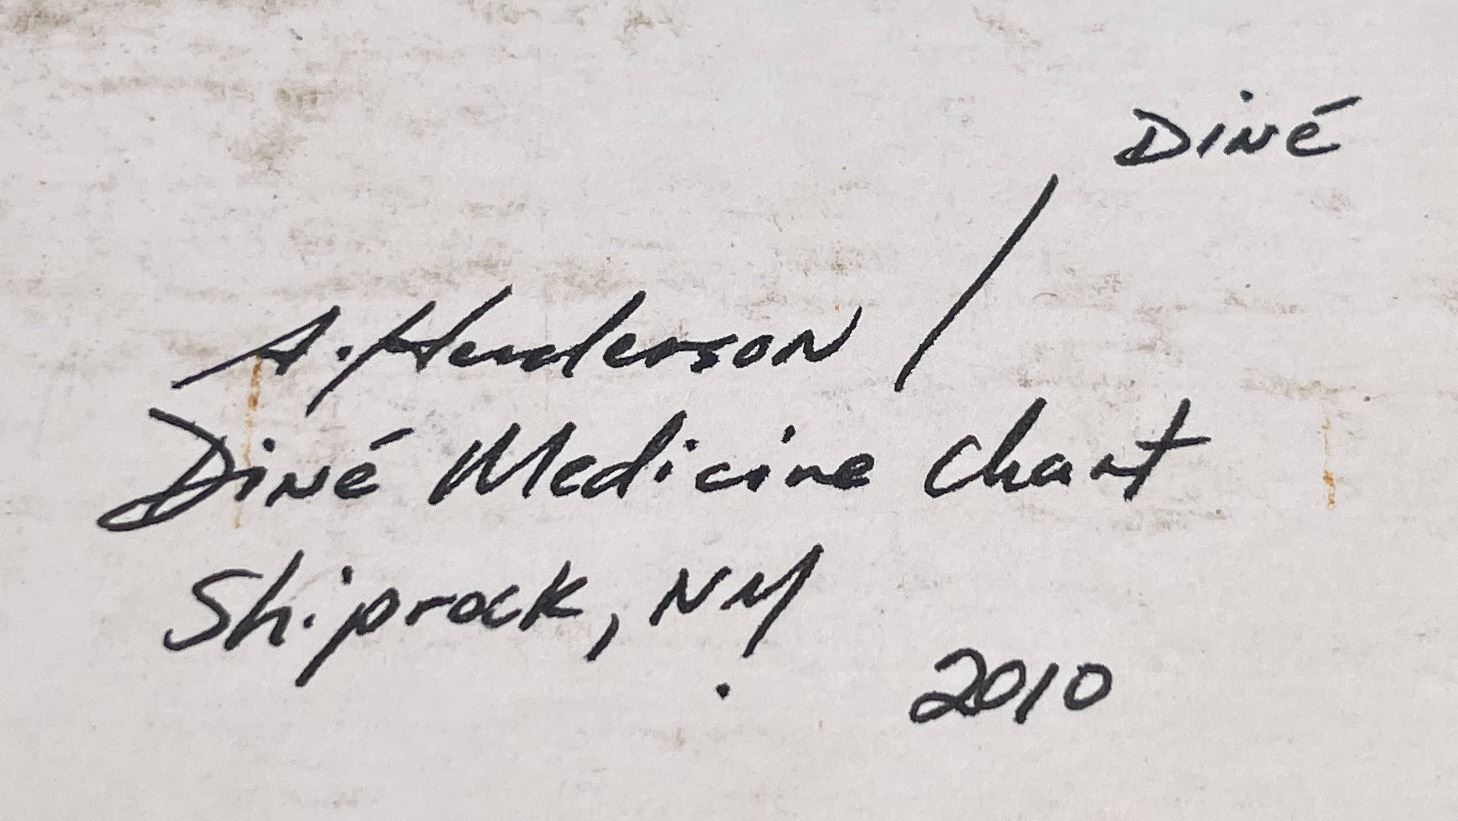 Diné
A. Henderson /
Diné Medicine Chant
Shiprock, NM
2010